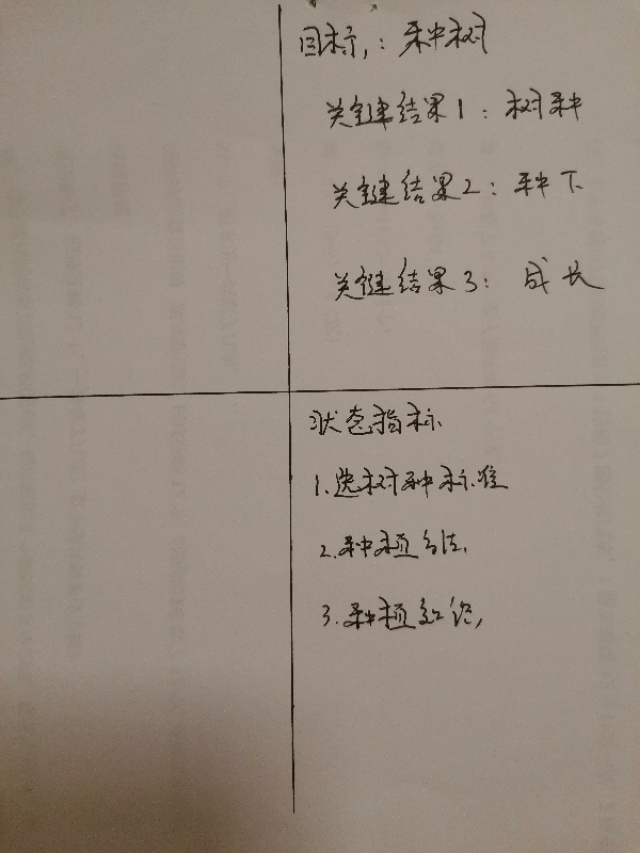 目标：种树
关键结果1：树种
关键结果2：种下
关键结果3：成长
状态指标
1.选树种标准
2.种植方法
3.种植知识